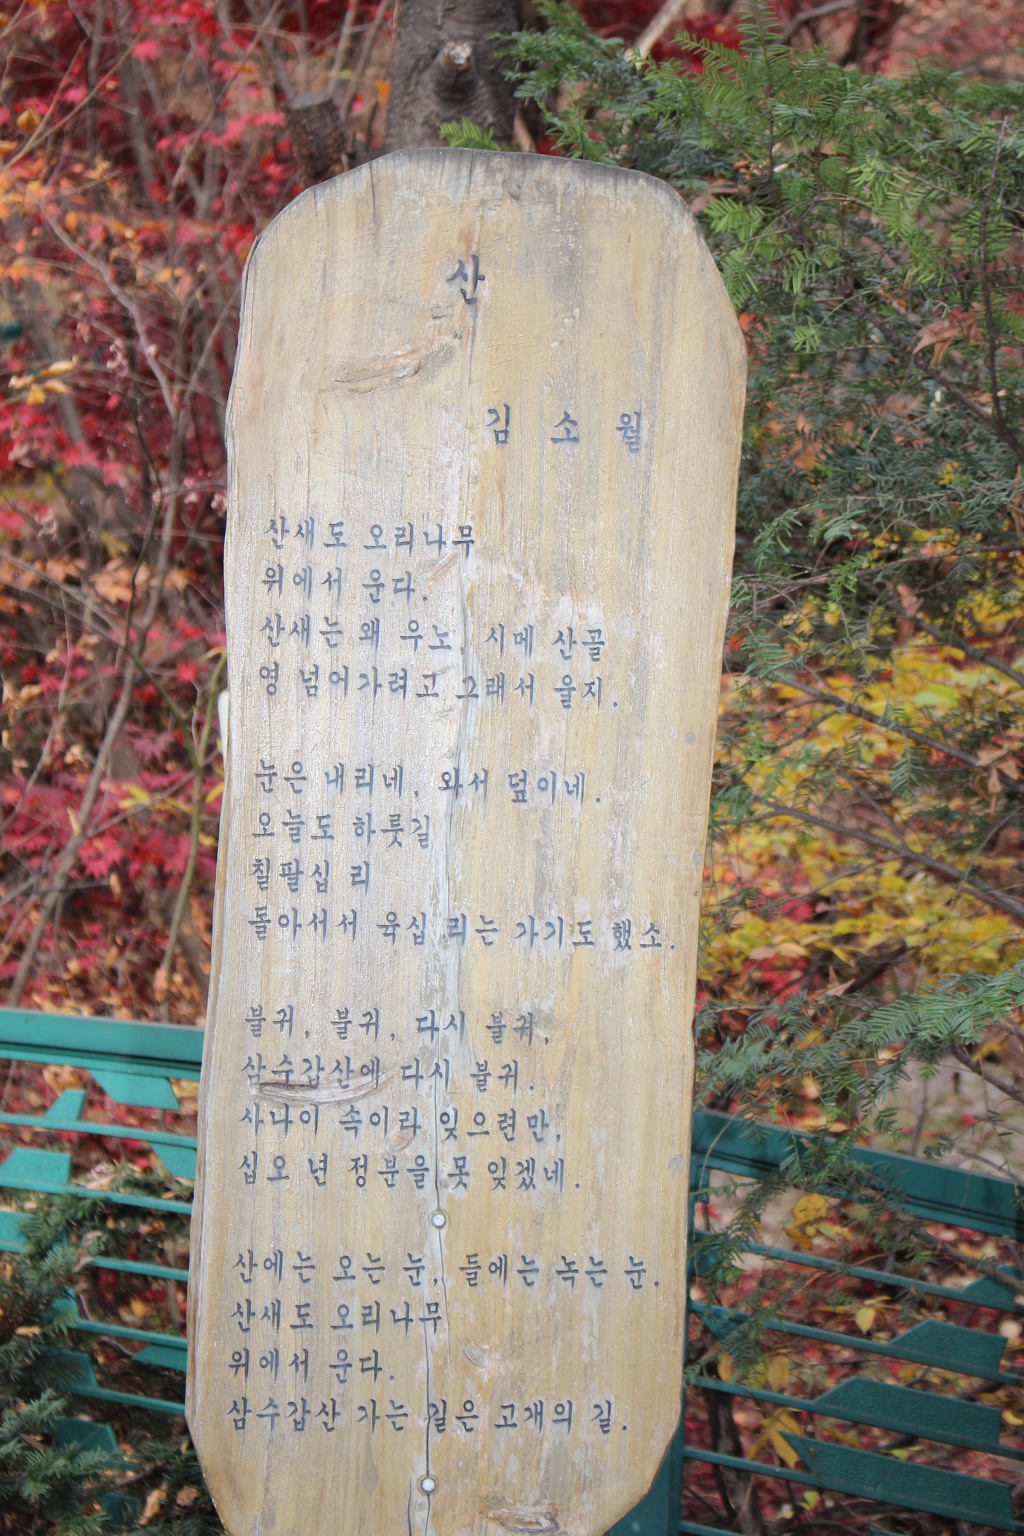 산
김 소 월
산새도 오리나무
위에서 운다.
산새는 왜 우노, 시메 산골
영 넘어가려고 그래서 울지.
눈은 내리네, 와서 덮이네.
오늘도 하룻길
칠팔십 리
돌아서서 육십 리는 가기도 했소.
불귀, 불귀, 다시 불귀,
삼수갑산에 다시 불귀.
사나이 속이라 잊으련만,
십오 년 정분을 못 잊겠네.
산에는 오는 눈, 들에는 녹는 눈.
산새도 오리나무
위에서 운다.
삼수갑산 가는 길은 고개의 길.